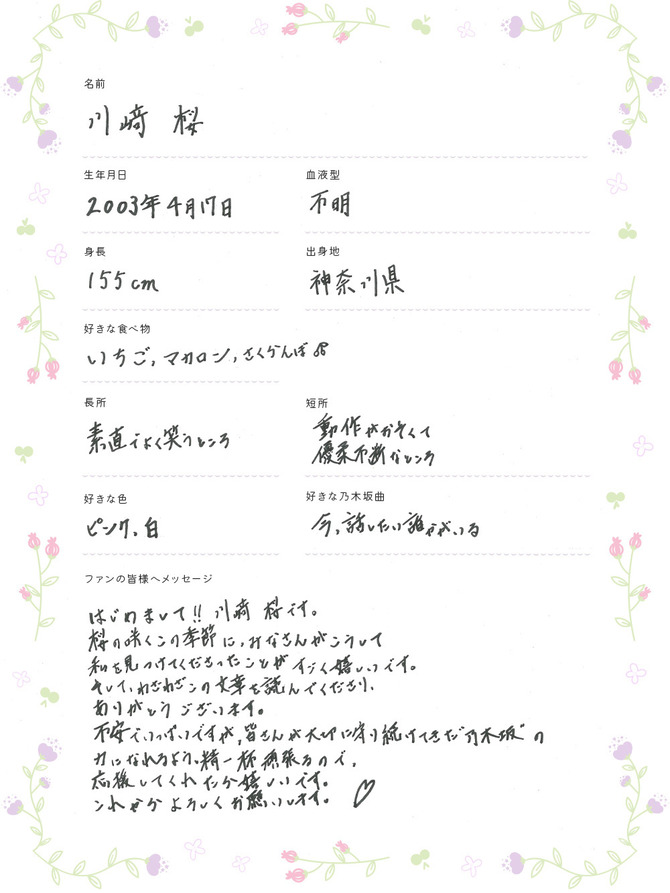 名前
川﨑 桜
生年月日
2003年4月17日
血液型
不明
身長
155cm
出身地
神奈川県
好きな食べ物
いちご,マカロン,さくらんぼ
長所
素直でよく笑うところ
短所
動作がおそくて
優柔不断なところ
好きな色
ピンク,白
好きな乃木坂曲
今,話したい誰かがいる
ファンの皆様へメッセージ
はじめまして!! 川﨑 桜です。
桜の咲くこの季節に,みなさんがこうして
私を見つけてくださったことがすごく嬉しいです。
そして,わざわざこの文章を読んでくださり,
ありがとうございます。
不安でいっぱいですが,皆さんが大切に守り続けてきた"乃木坂"の
力になれるよう,精一杯頑張るので,
応援してくれたら嬉しいです。
これからよろしくお願いします。♡